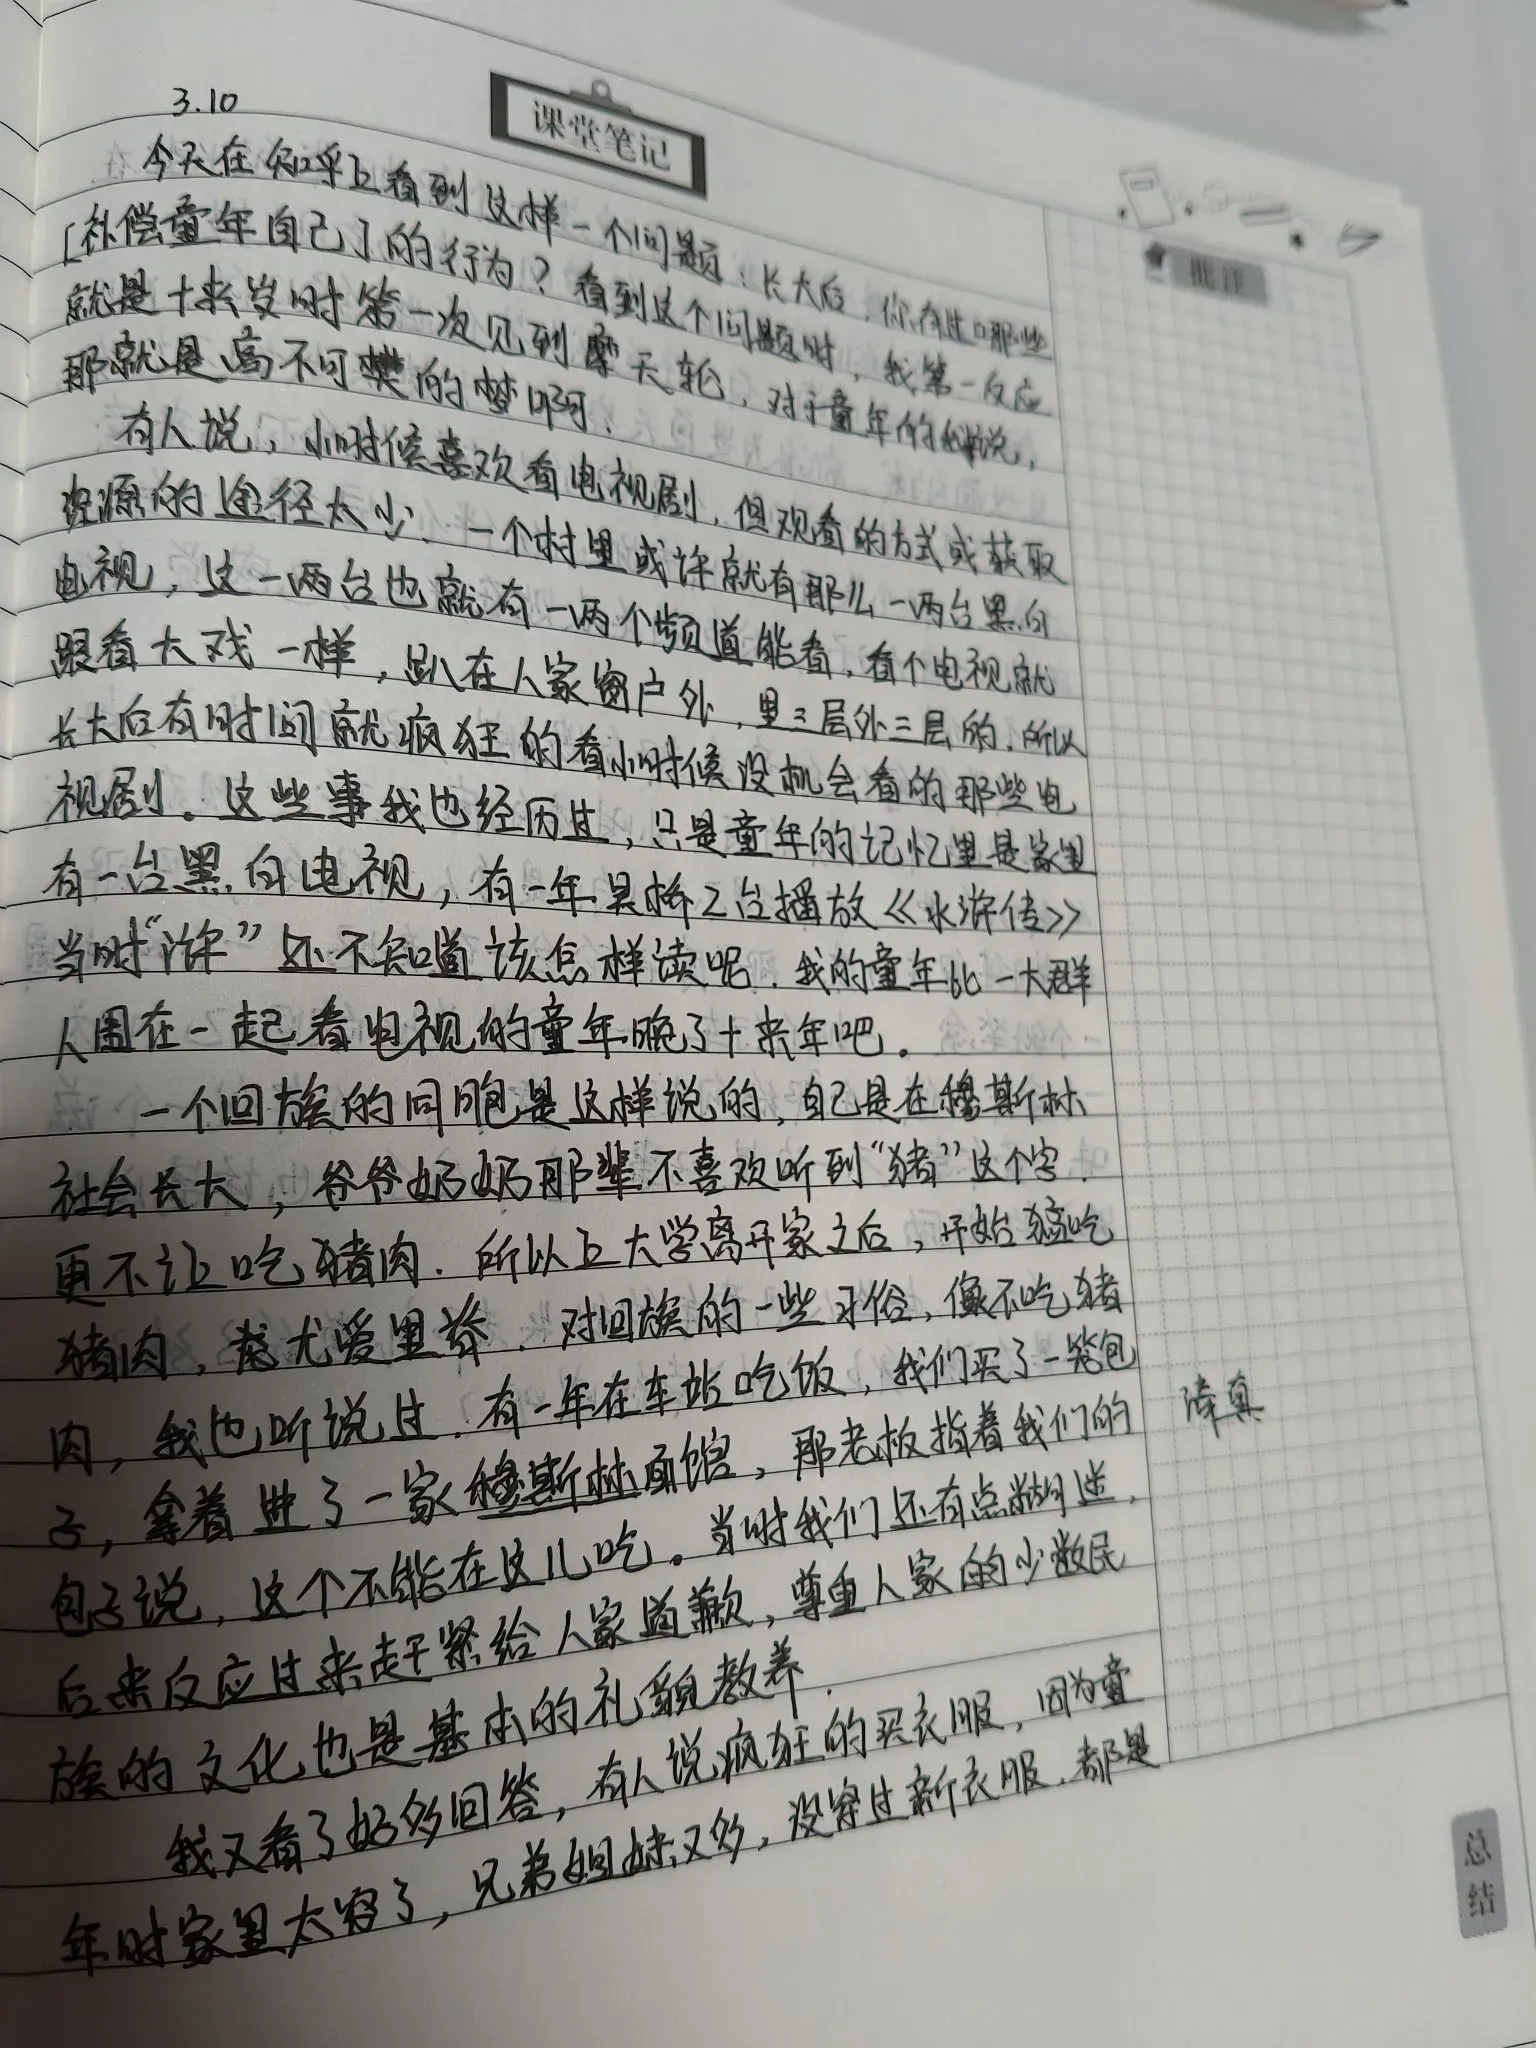 课堂笔记
3.10
今天在知乎上看到这样一个问题：长大后，你有过哪些
「补偿童年自己」的行为？看到这个问题时，我第一反应
就是十来岁时第一次见到摩天轮，对于童年的我来说，
那就是高不可攀的梦啊.
有人说，小时候喜欢看电视剧，但观看的方式或获取
资源的途径太少.一个村里或许就有那么一两台黑白
电视，这一两台也就有一两个频道能看，看个电视就
跟看大戏一样，趴在人家窗户外，里三层外三层的.所以
长大后有时间就疯狂的看小时候没机会看的那些电
视剧。这些事我也经历过，只是童年的记忆里是家里
有一台黑白电视，有一年吴桥2台播放《水浒传》
当时“浒”还不知道该怎样读呢.我的童年比一大群
人围在一起看电视的童年晚了十来年吧.
一个回族的同胞是这样说的，自己是在穆斯林
社会长大，爷爷奶奶那辈不喜欢听到“猪”这个字.
更不让吃猪肉.所以上大学离开家之后，开始猛吃
猪肉，尤爱里脊.对回族的一些习俗，像不吃猪
肉，我也听说过.有一年在车站吃饭，我们买了一笼包
子，拿着进了一家穆斯林面馆，那老板指着我们的
包子说，这个不能在这儿吃。当时我们还有点糊迷，
后来反应过来赶紧给人家道歉，尊重人家的少数民
族的文化也是基本的礼貌教养.
我又看了好多回答，有人说疯狂的买衣服，因为童
年时家里太穷了，兄弟姐妹又多，没穿过新衣服.都是
批注
真
总结